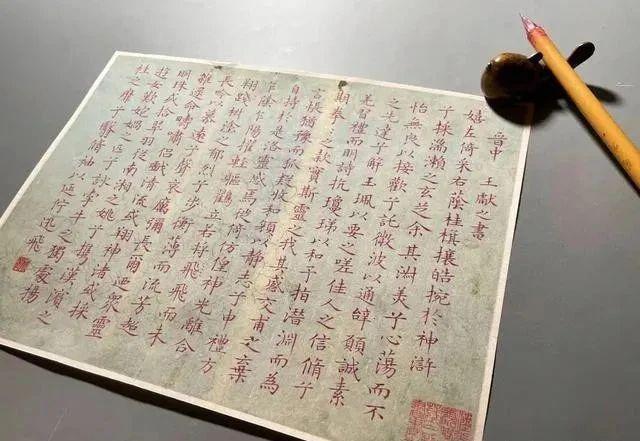 晉中 王獻之書
嬉左倚采右蔭桂旗攘皓捥於神滸
兮採湍瀨之玄芝余其淑美兮心蕩而不
怡無良以接歡兮託微波以通辭願誠素
之先達兮解玉珮以要之嗟佳人之信脩兮
羌習禮而明詩抗瓊珶以和予指潛淵而為
期奉之款實斯靈之我其感交甫之棄
言悵猶豫而狐疑收和顏以静志兮申禮方
自持於是洛靈感焉徙倚仿偟神光離合
乍陰乍陽軀鶴立若將飛飛而未
翔踐椒塗之郁烈兮步衡薄而流芳超
長吟以慕遠兮聲哀厲彌長爾迺眾靈
雜遝命嘯侶戲清流或翔神渚或採
明珠或拾翠羽從南湘之二兮攜漢濱之
遊女歎媧之匹兮詠牽牛之獨處揚
杜之靡兮翳脩袖以延佇迅飛